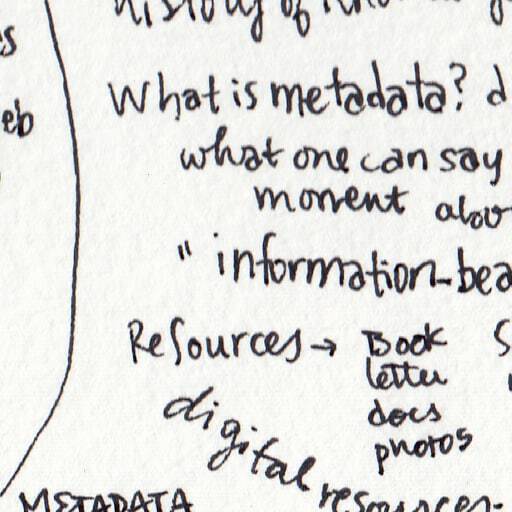 s
eb
history of
What is metadata? d
what one can say
moment abou
" information-bea
Resources → Book S
letter
docs
photos
digital resources.
METADATA